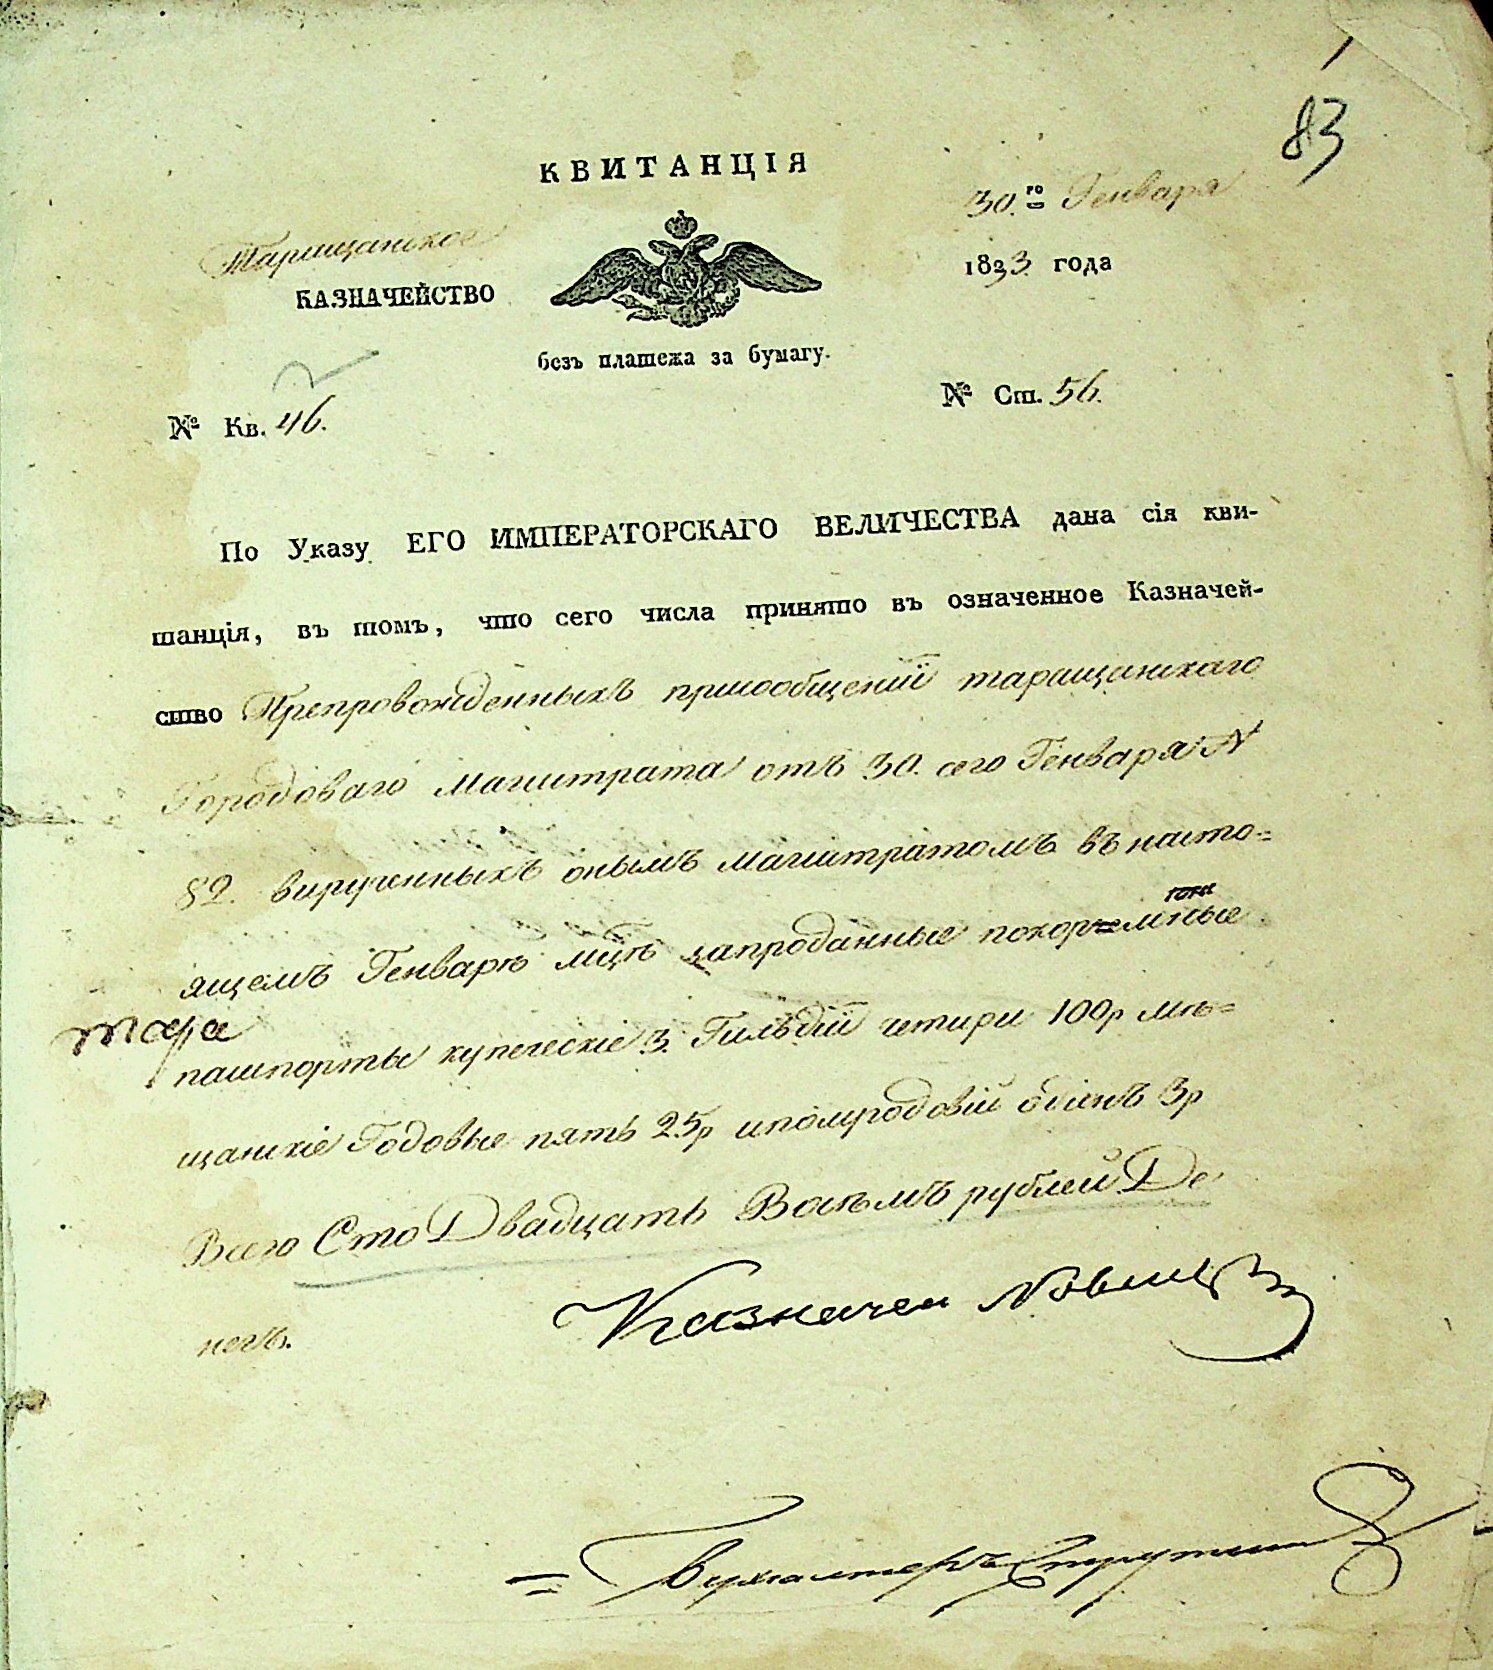 83
КВИТАНЦІЯ
30.го Генваря
Таращанское
1833 года
КАЗНАЧЕЙСТВО
безъ платежа за бумагу.
№ Ст. 56.
№ Кв. 46.
По Указу ЕГО ИМПЕРАТОРСКАГО ВЕЛИЧЕСТВА дана сія кви-
танція, въ томъ, что сего числа принято въ означенное Казначей-
ство Препровожденныхъ присообщеніи таращанскаго
Городоваго Магистрата отъ 30. сего Генваря N
82. вирученныхъ онымъ магистратомъ въ насто=
ящемъ Генварѣ мцѣ запроданные
пашпорты купеческіе 3. Гильдіи четири 100р мѣ=
щанскіе Годовые пять 25р иполугодовій одинъ 3р
Всего Сто Двадцать Восѣмъ рублей Де
негъ.
Казначей
Бухгалтеръ